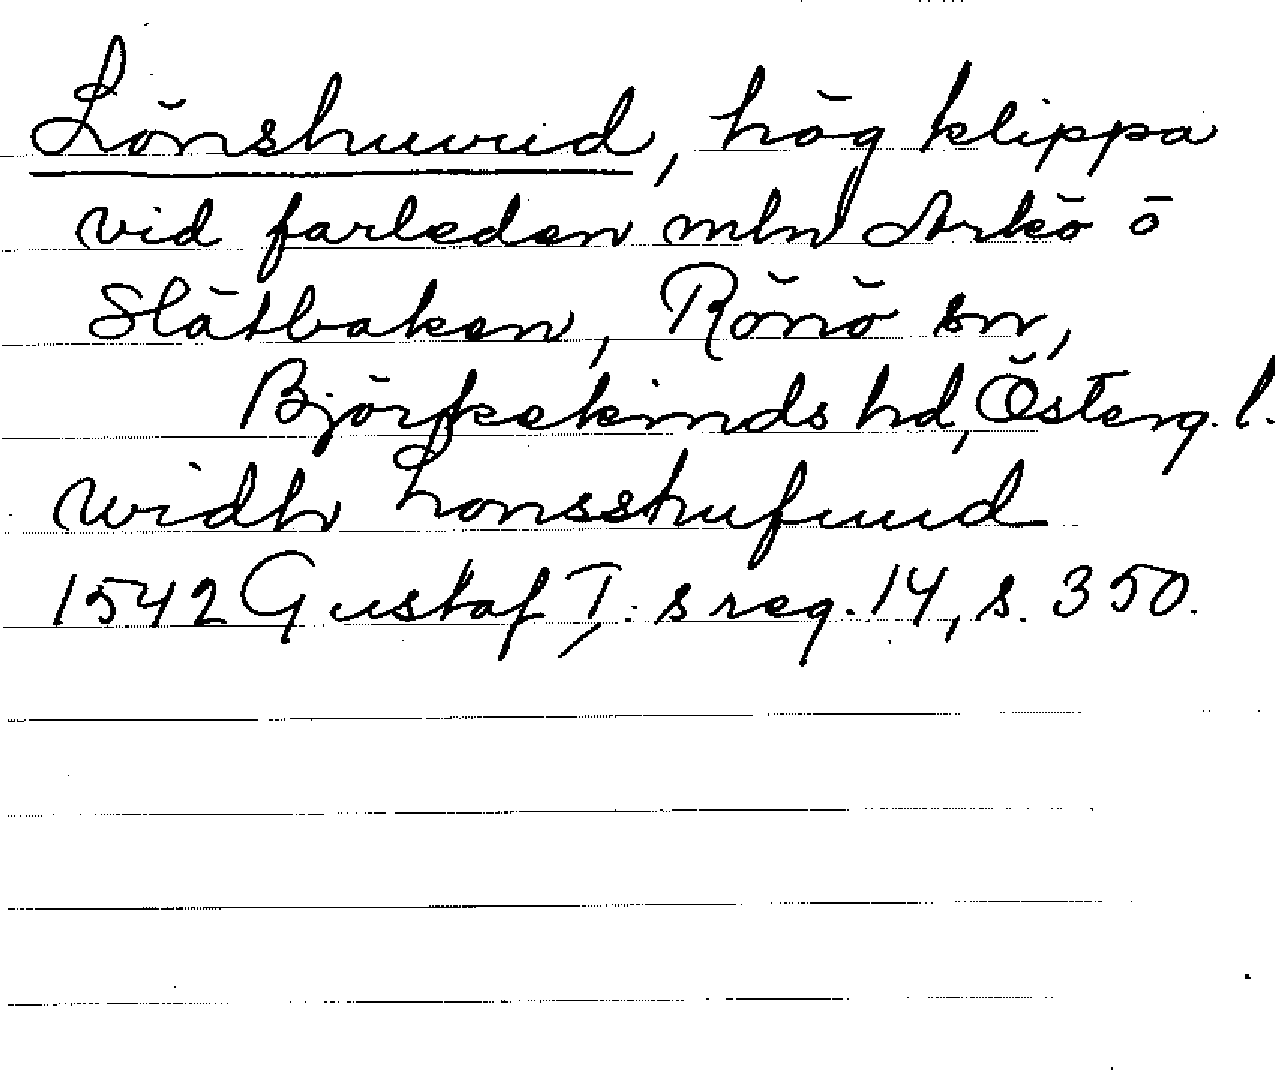 Lönshuvud, hög klippa
vid farleden mln Arkö o
Slätbaken, Rönö sn,
Björkekinds hd, Österg. l.
widh Lonsshufuud
1542 Gustaf I:s reg. 14, s. 350.